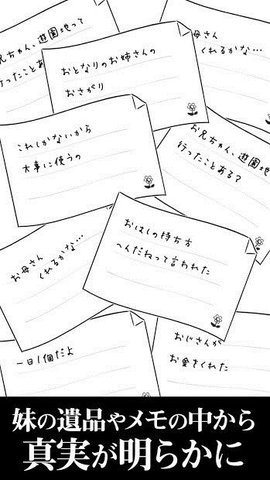 兄ちゃん、遊園地って
行ったことあ
母さん
くれるかな…
おとなりのお姉さんの
おさがり
これしかないから
大事に使うの
お兄ちゃん、遊園地って
行ったことある？
おはしの持ち方
へんだねって言われた
お母さん
くれるかな…
おじさんが
お金をくれた
一日1個だよ
妹の遺品やメモの中から
真実が明らかに